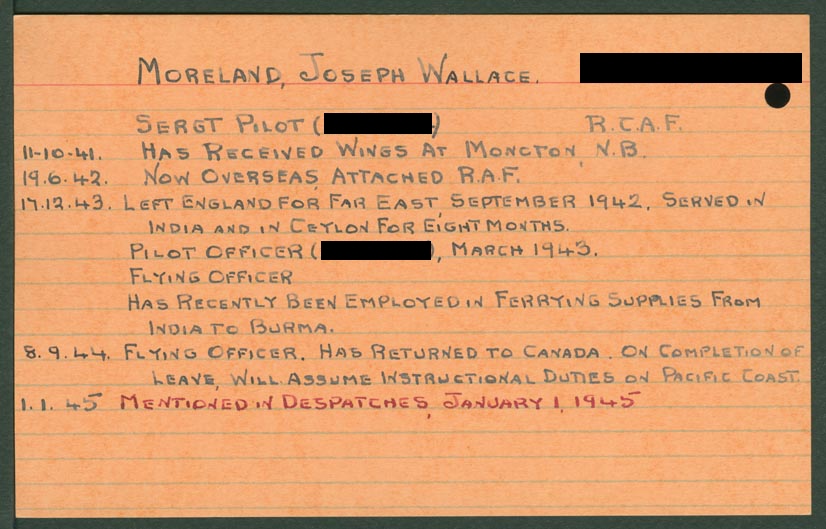 MORELAND, JOSEPH WALLACE.
SERGT PILOT ( ) R.C.A.F.
11-10-41. HAS RECEIVED WINGS AT MONCTON, N.B.
19.6.42. NOW OVERSEAS, ATTACHED R.A.F.
17.12.43. LEFT ENGLAND FOR FAR EAST, SEPTEMBER 1942. SERVED IN
INDIA AND IN CEYLON FOR EIGHT MONTHS.
PILOT OFFICER ( ), MARCH 1943.
FLYING OFFICER
HAS RECENTLY BEEN EMPLOYED IN FERRYING SUPPLIES FROM
INDIA TO BURMA.
8.9.44. FLYING OFFICER. HAS RETURNED TO CANADA. ON COMPLETION OF
LEAVE, WILL ASSUME INSTRUCTIONAL DUTIES ON PACIFIC COAST.
1.1.45 MENTIONED IN DESPATCHES, JANUARY 1, 1945